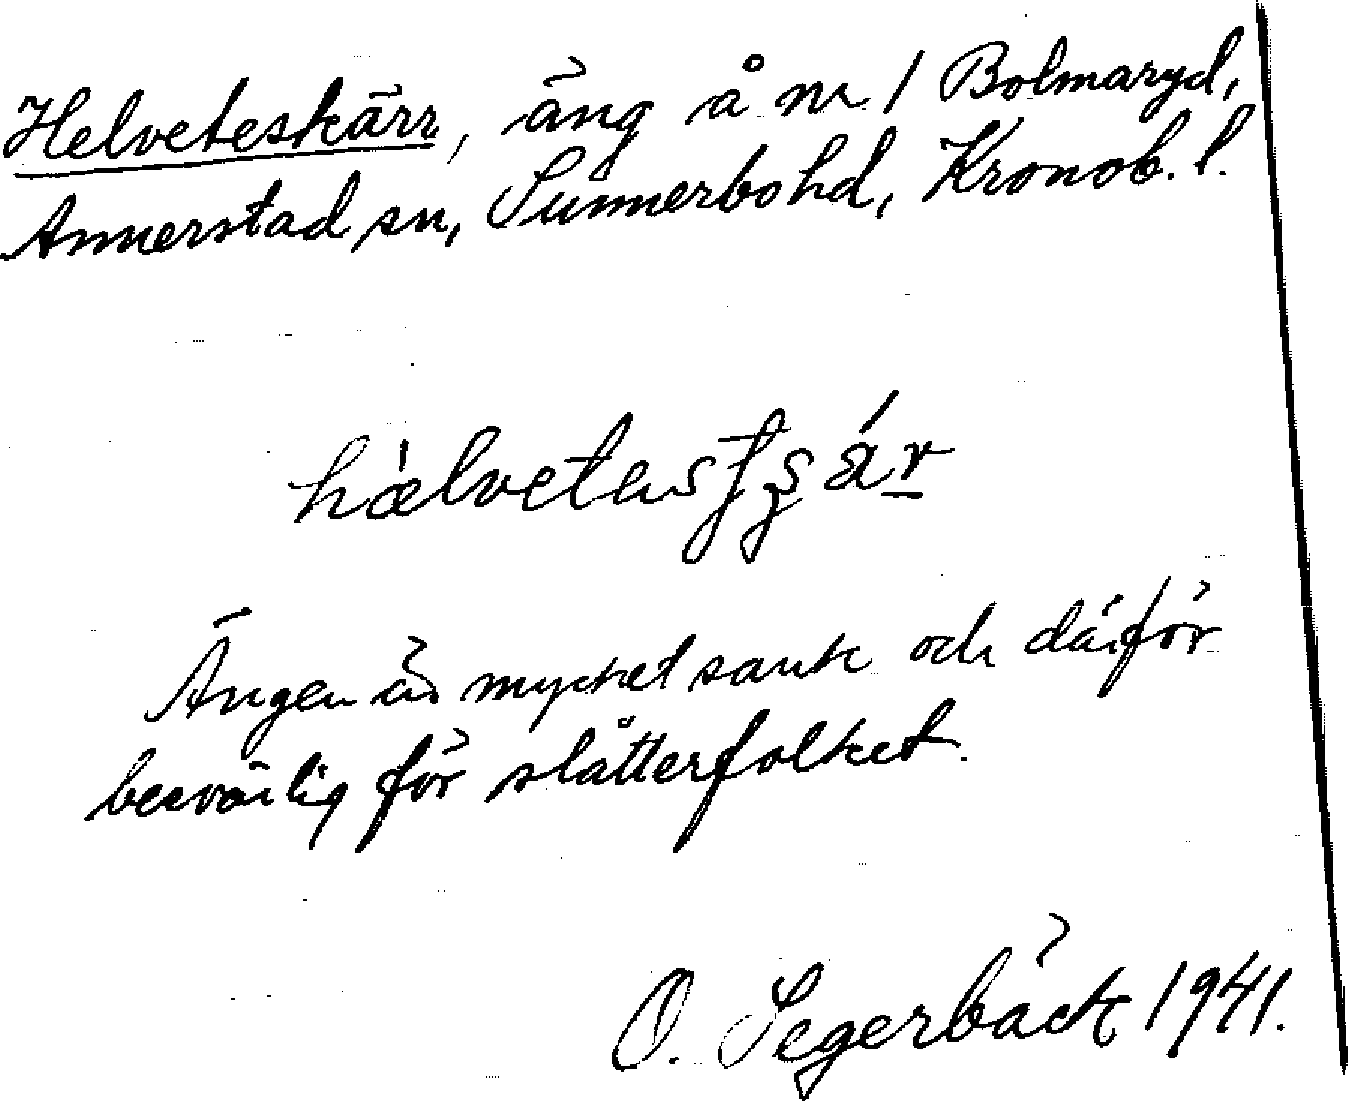 Helveteskärr, äng å nr 1 Bolmaryd,
Annerstad sn, Sunnerbo hd, Kronob. l.
Ängen är mycket sank och därför
besvärlig för slåtterfolket.
O. Segerbäck 1941.